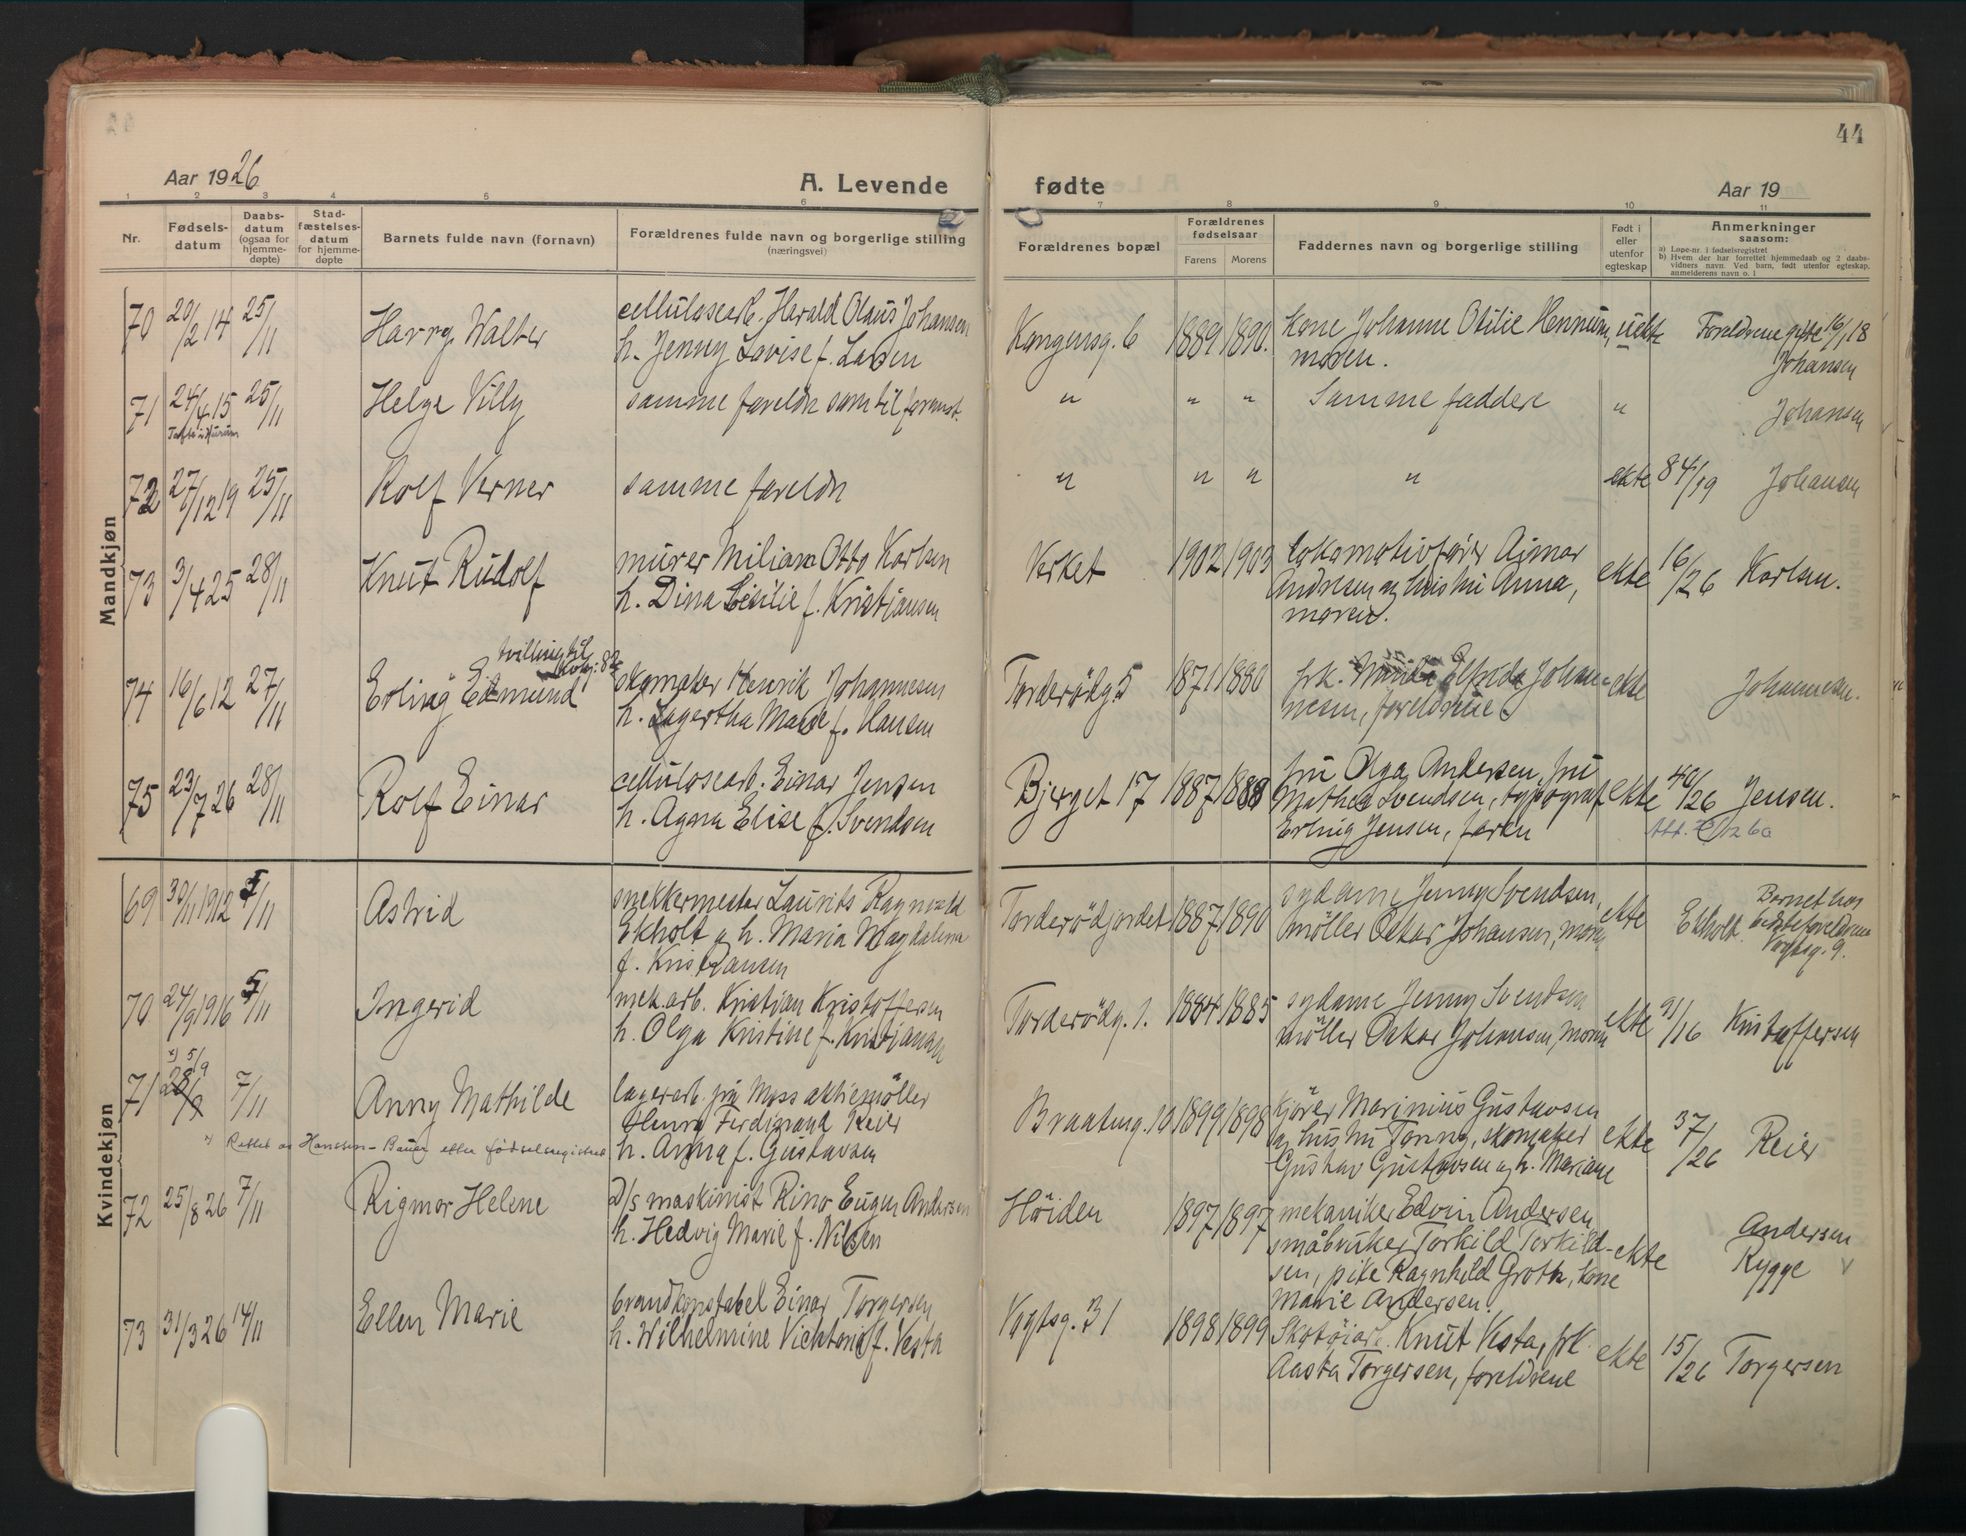 44
Aar 1926
A. Levende
fødte
Aar 19
1 2 3 4 5 6 7 8 9 10 11
Nr.
Fødsels-
datum
Daabs-
datum
(ogsaa for
hjemme-
døpte)
Stad-
fæstelses-
datum
for hjemme-
døpte
Barnets fulde navn (fornavn)
Forældrenes fulde navn og borgerlige stilling
(næringsvei)
Forældrenes bopæl
Forældrenes
fødselsaar
Farens Morens
Faddernes navn og borgerlige stilling
Født i
eller
utenfor
egteskap
Anmerkninger
saasom:
a) Løpe-nr. i fødselsregistret
b) Hvem der har forrettet hjemmedaab og 2 daabs-
vidners navn. Ved barn, født utenfor egteskap,
anmelderens navn o. l
Mandkjøn
70 20/2 14 25/11 Harry Walter
cellulosearb. Harald Olaus Johansen
h. Jenny Lovise f. Larsen
Kongensg. 6 1889 1890.
kone Johanne Otilie Hennum,
moren.
uekte
Foreldrene gifte 16/1 18
Johansen
71 24/4 15 25/11 Helge Villy
Tofte i Hurum
samme foreldre som til foranst.
" " " Samme faddere " Johansen
72 27/12 19 25/11 Rolf Verner
samme foreldre
" " " " ekte 84/19 Johansen
73 3/4 25 28/11 Knut Rudolf
murer Milian Otto Karlsen
h. Dina Cesilie f. Kristiansen
Verket 1902 1903
lokomotivfører Ajmar
Andresen og hans hu Anna,
moren.
ekte 16/26 Karlsen.
74 16/6 12 27/11 Erling Edmund
tvilling til
skomaker Henrik Johannesen
h. Lagertha Marie f. Hansen
Torderødg. 5 1871 1880
frk. Elfrida Johan-
nesen, foreldrene
ekte Johannesen.
75 23/7 26 28/11 Rolf Einar
cellulosearb. Einar Jensen
h. Agna Elise f. Svendsen
Bjerget 17 1887 1888
fru Olga Andersen, fru
Mathea Svendsen, typograf
Erling Jensen, faren
ekte 40/26 Jensen.
Kvindekjøn
69 30/11 1912 5/11 Astrid
snekkermester Laurits Ragnvald
Ekholt og h. Maria Magdalena
f. Kristiansen
Torderødjordet 1887 1890
sydame Jenny Svendsen,
møller Oskar Johansen, moren
ekte Ekholt.
Barnet hos
bedsteforeldrene
Vogtsg. 9.
70 24/9 1916 5/11 Ingerid
mek. arb. Kristian Kristoffersen
h. Olga Kristine f. Kristiansen
Torderødg. 1. 1884 1885
sydame Jenny Svendsen
møller Oskar Johansen, moren
ekte 91/16 Kristoffersen
71 x) 5/9 28/9 7/11 Anny Mathilde
lagerarb. Moss aktiemøller
Henry Ferdinand Reier
h. Anna f. Gustavsen
x) Rettet av Hanssen-Bauer efter fødselsregistret
Braateng. 10 1899 1898
kjører Marinius Gustavsen
og hus hu Jonny, skomaker
Gustav Gustavsen og h. Mariane
ekte 37/26 Reier
72 25/8 26 7/11 Rigmor Helene
D/s maskinist Rino Eugen Andersen
h. Hedvig Marie f. Nilsen
Høiden 1897 1897
mekaniker Edvin Andersen,
småbruker Torkild Torkild-
sen, pike Ragnhild Groth, kone
Marie Andersen.
ekte
Andersen
Rygge
73 31/3 26 14/11 Ellen Marie
brandkonstabel Einar Torgersen
h. Wilhelmine Vicktoria f. Vesta
Vogtsg. 31 1898 1899
Skotøiarb. Knut Vesta, frk.
Aasta Torgersen, foreldrene
ekte 15/26 Torgersen